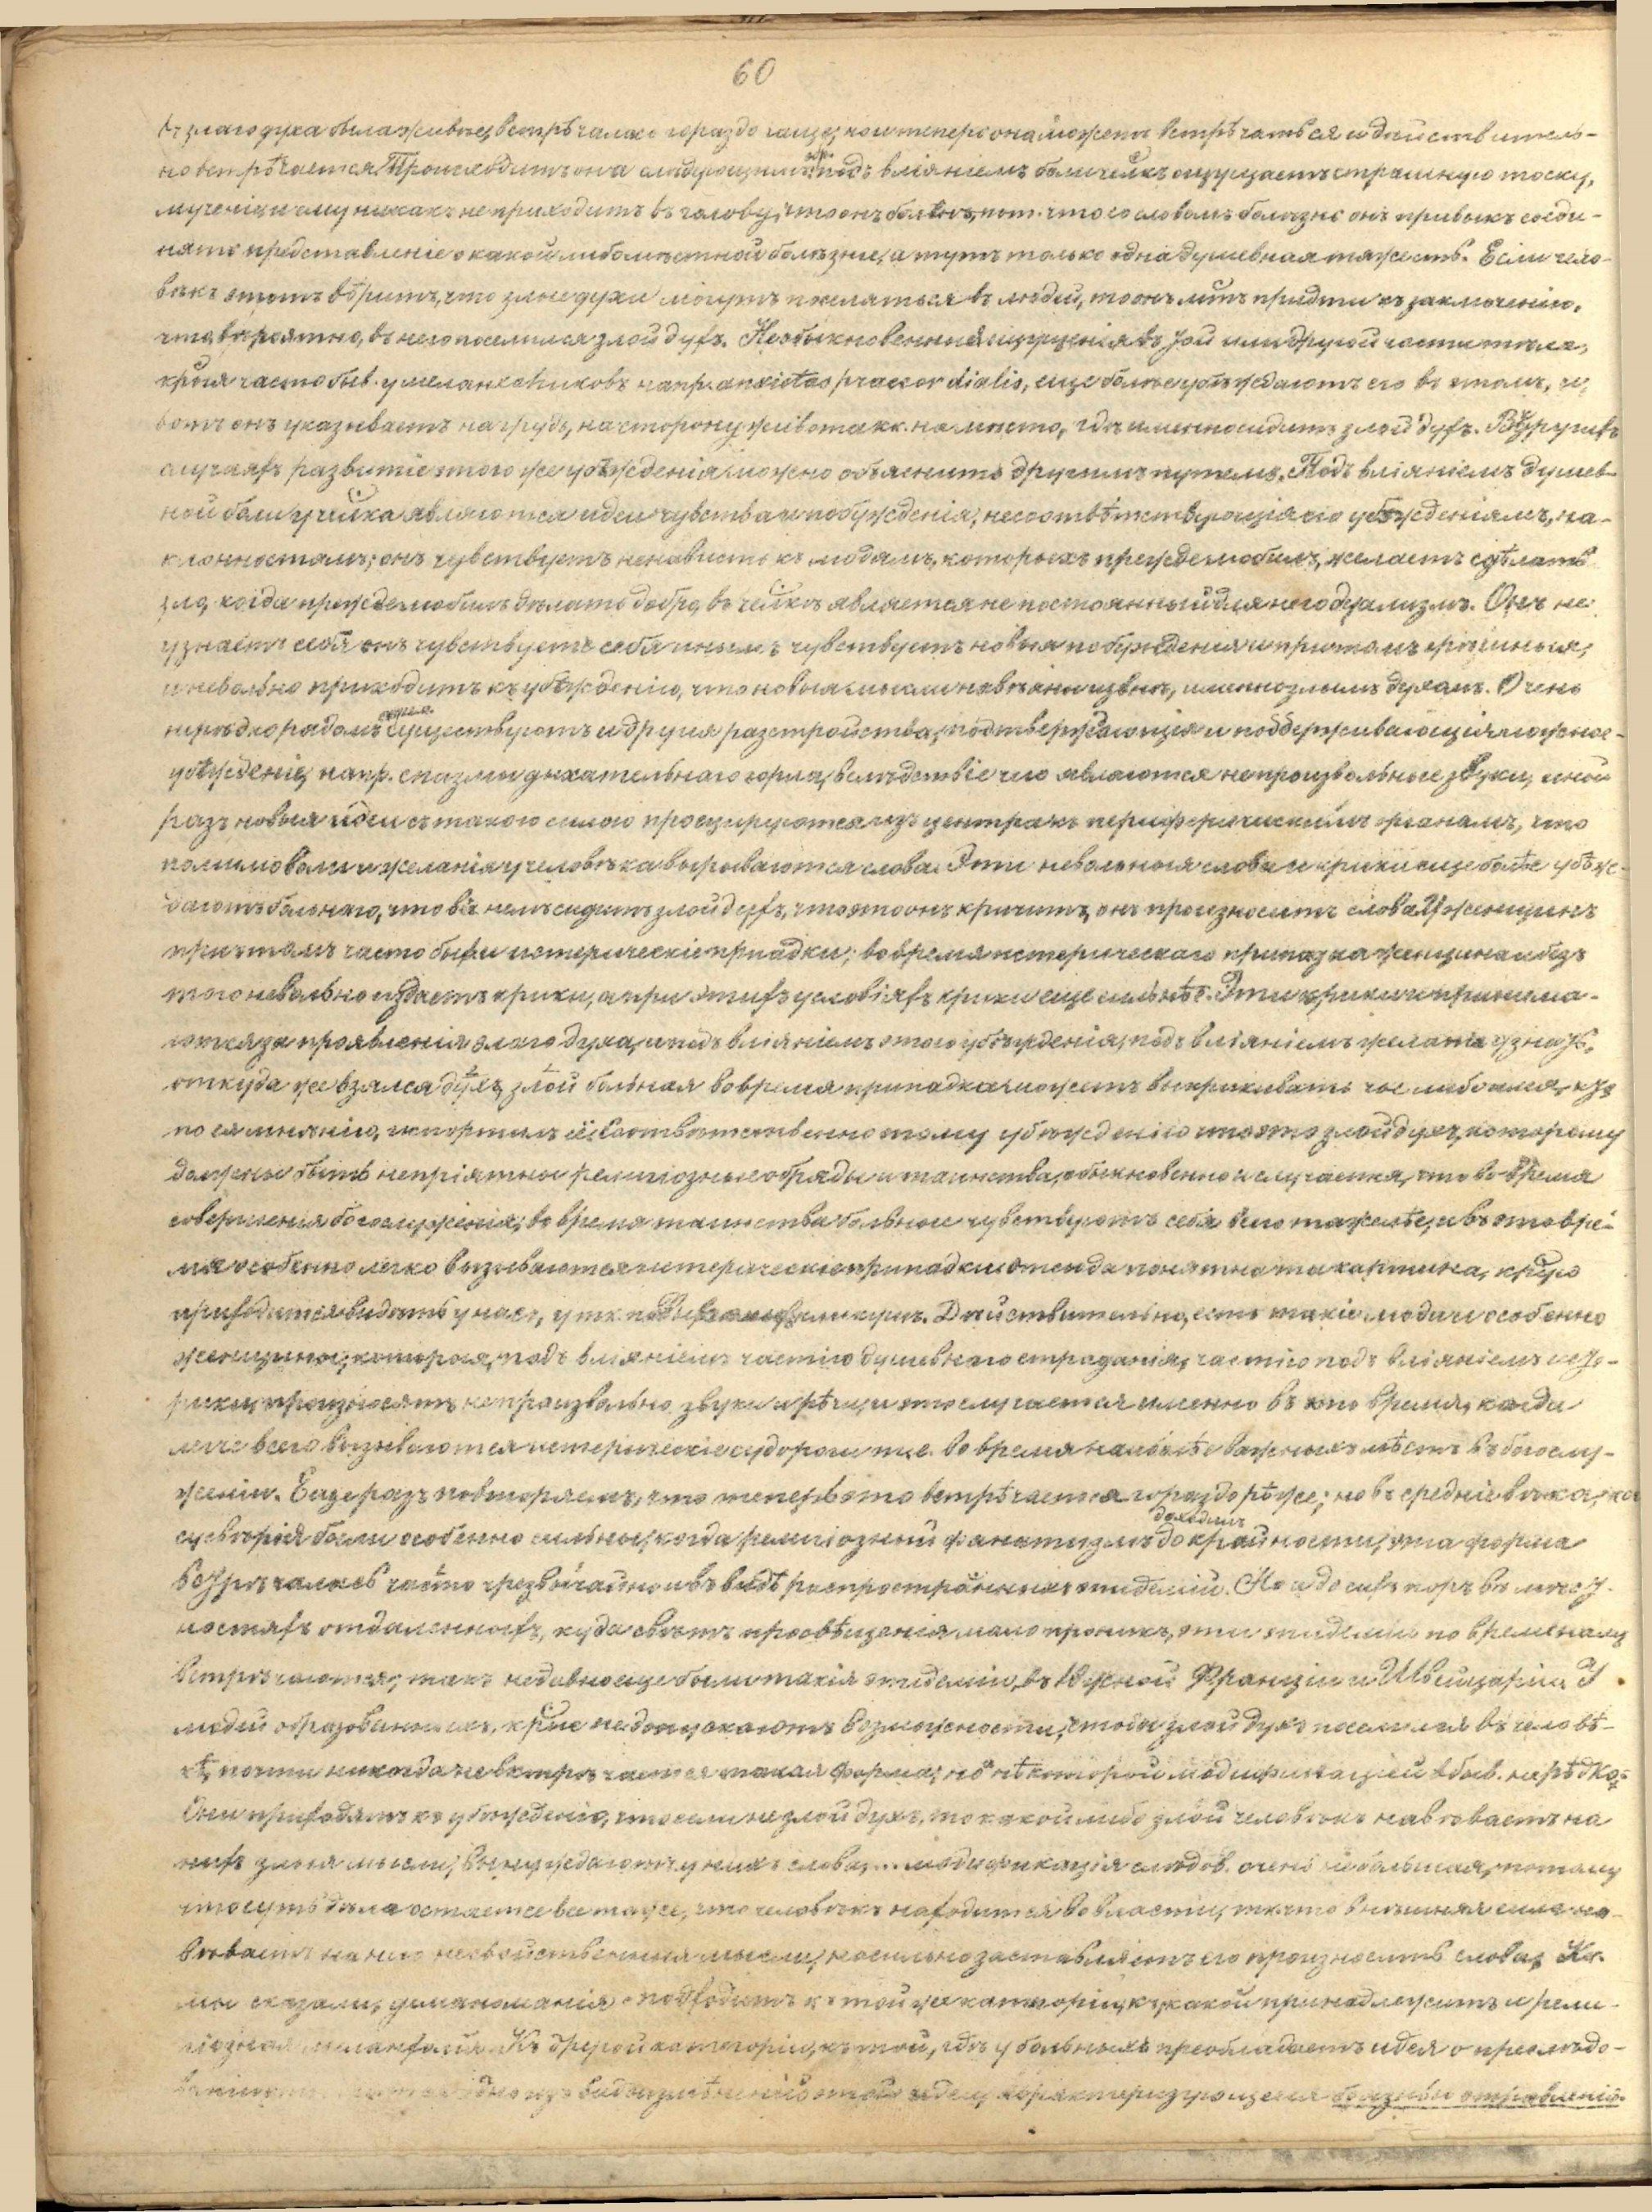 60
злаго духа была живѣе, встрѣчалась гораздо чаще, но и теперь она можетъ встрѣчаться и дѣйствитель-
но встрѣчается. Происходитъ она слѣдующимъ обр. подъ вліяніемъ боли челкъ ощущаетъ страшную тоску,
мученія, и ему никакъ не приходитъ въ голову, что онъ боленъ, пот. что со словомъ болѣзнь онъ привыкъ соеди-
нять представленіе о какой либо мѣстной болѣзни, а тутъ только одна душевная тяжесть. Если чело-
вѣкъ этотъ вѣритъ, что злые духи могутъ вселяться въ людей, то онъ мож. придти къ заключенію,
что, вѣроятно, въ него поселился злой духъ. Необыкновенныя ощущенія въ той или другой части тѣла,
крыя часто быв. у меланхоликовъ напр. anxietas praecordialis, еще болѣе убѣждаютъ его въ этомъ, и
вотъ онъ указываетъ на грудь, на сторону живота кк. на мѣсто, гдѣ именно сидитъ злой духъ. Въ другихъ
случаяхъ развитіе этого же убѣжденія можно объяснить другимъ путемъ. Подъ вліяніемъ душев-
ной боли у челка являются идеи, чувства и побужденія, несоотвѣтствующія его убѣжденіямъ, на-
клонностямъ; онъ чувствуетъ ненависть къ людямъ, которыхъ прежде любилъ, желаетъ сдѣлать
зло, когда прежде любилъ дѣлать добро, въ челкѣ является не постоянный для него дуализмъ. Онъ не
узнаетъ себя, онъ чувствуетъ себя инымъ, чувствуетъ новыя побужденія и притомъ
и невольно приходитъ къ убѣжденію, что новыя мысли навѣяны извнѣ, именно злымъ духомъ. Очень
нерѣдко рядомъ существуютъ и другія разстройства, подтверждающія и поддерживающія ложное
убѣжденіе, напр. спазмы дыхательнаго горла, вслѣдствіе чего являются непроизвольные звуки, иной
разъ новыя идеи съ такою силою проецируются изъ центра къ периферическимъ органамъ, что
помимо воли и желанія у человѣка вырываются слова. Эти невольныя слова и крики еще болѣе убѣж-
даютъ больнаго, что въ немъ сидитъ злой духъ, что это онъ кричитъ, онъ произноситъ слова. У женщинъ
при этомъ часто были истерическіе припадки; во время истерическаго припадка женщина и безъ
того невольно издаетъ крики, а при этихъ условіяхъ крики еще сильнѣе. Эти крики и принима-
ются за проявленія злаго духа, и подъ вліяніемъ этого убѣжденія, подъ вліяніемъ желанія узнать,
откуда же взялся духъ злой больная во время припадка можетъ выкрикивать чье либо имя, кто
по ея мнѣнію, испортилъ её. Соотвѣтственно тому убѣжденію что это злой духъ, которому
должны быть непріятны религіозные обряды и таинства, обыкновенно и случается, что во время
совершенія богослуженія, во время таинства больные чувствуютъ себя всего тяжелѣе, и въ это вре-
мя особенно легко вызываются истерическіе припадки отсюда понятна та картина, крую
приходится видать у насъ, у тк. н. кликушъ. Дѣйствительно, есть такіе люди и особенно
женщины, которыя, подъ вліяніемъ частію душевнаго страданія, частію подъ вліяніемъ исте-
рики, произносятъ непроизвольно звуки и рѣчи, и это случается именно въ то время, когда
легче всего вызываются истерическіе судороги т.е. во время наиболѣе важныхъ мѣстъ въ богослу-
женіи. Еще разъ повторяемъ, что теперь это встрѣчается гораздо рѣже; но въ средніе вѣка, ког
суевѣрія были особенно сильны, когда религіозный фанатизмъ доходилъ до крайности, эта форма
встрѣчалась часто чрезвычайно и въ видѣ распространенныхъ эпидемій. Но и до сихъ поръ въ мѣст-
ностяхъ отдаленныхъ, куда свѣтъ просвѣщенія мало проникъ, эти эпидеміи по временамъ
встрѣчаются; такъ недавно еще были такія эпидеміи въ Южной Франціи и Швейцаріи. У
людей образованныхъ, крые не допускаютъ возможности, чтобы злой духъ поселился въ человѣ-
кѣ, почти никогда не встрѣчается такая форма; но съ нѣкоторой модификаціей быв. нерѣдко.
Они приходятъ къ убѣжденію, что если не злой духъ, то какой либо злой человѣкъ навѣваетъ на
нихъ злыя мысли, вынуждаютъ у нихъ слова,... модификація слѣдов. очень небольшая, потому
что суть дѣла остается все таже, что человѣкъ находится во власти, тк. что внѣшняя сила на-
вѣваетъ на него несвойственныя мысли, насильно заставляетъ его произносить слова. Кк.
мы сказали, демономанія подходитъ къ той же категоріи, къ какой принадлежитъ и рели-
гіозная меланхолія. Къ другой категоріи, къ той, гдѣ у больныхъ преобладаетъ идея о преслѣдо-
ваніи одно изъ видоизмѣненій этой идеи, характеризующееся боязнью отравленія.